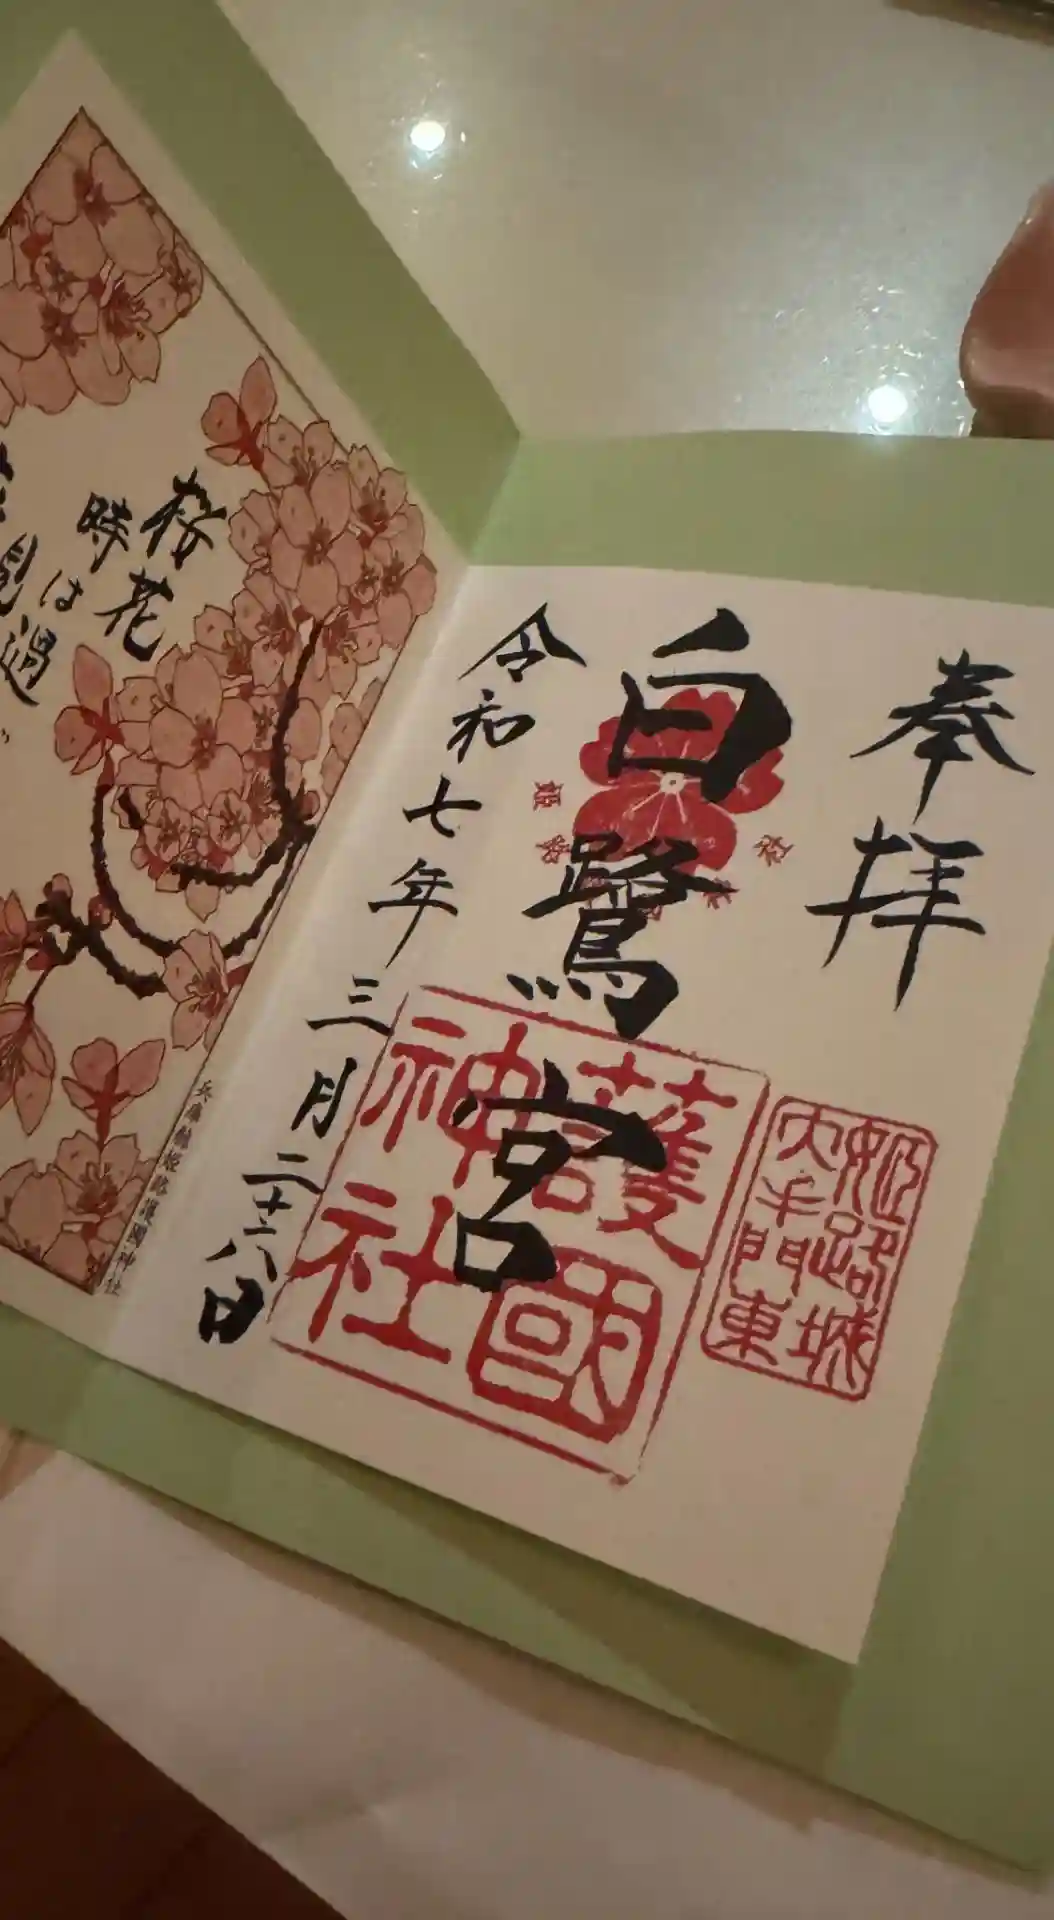 奉拝
白鷺宮
令和七年三月二十六日
護國
神社
姫路城
大手門東
桜花
時は過
兵庫縣姫路護國神社